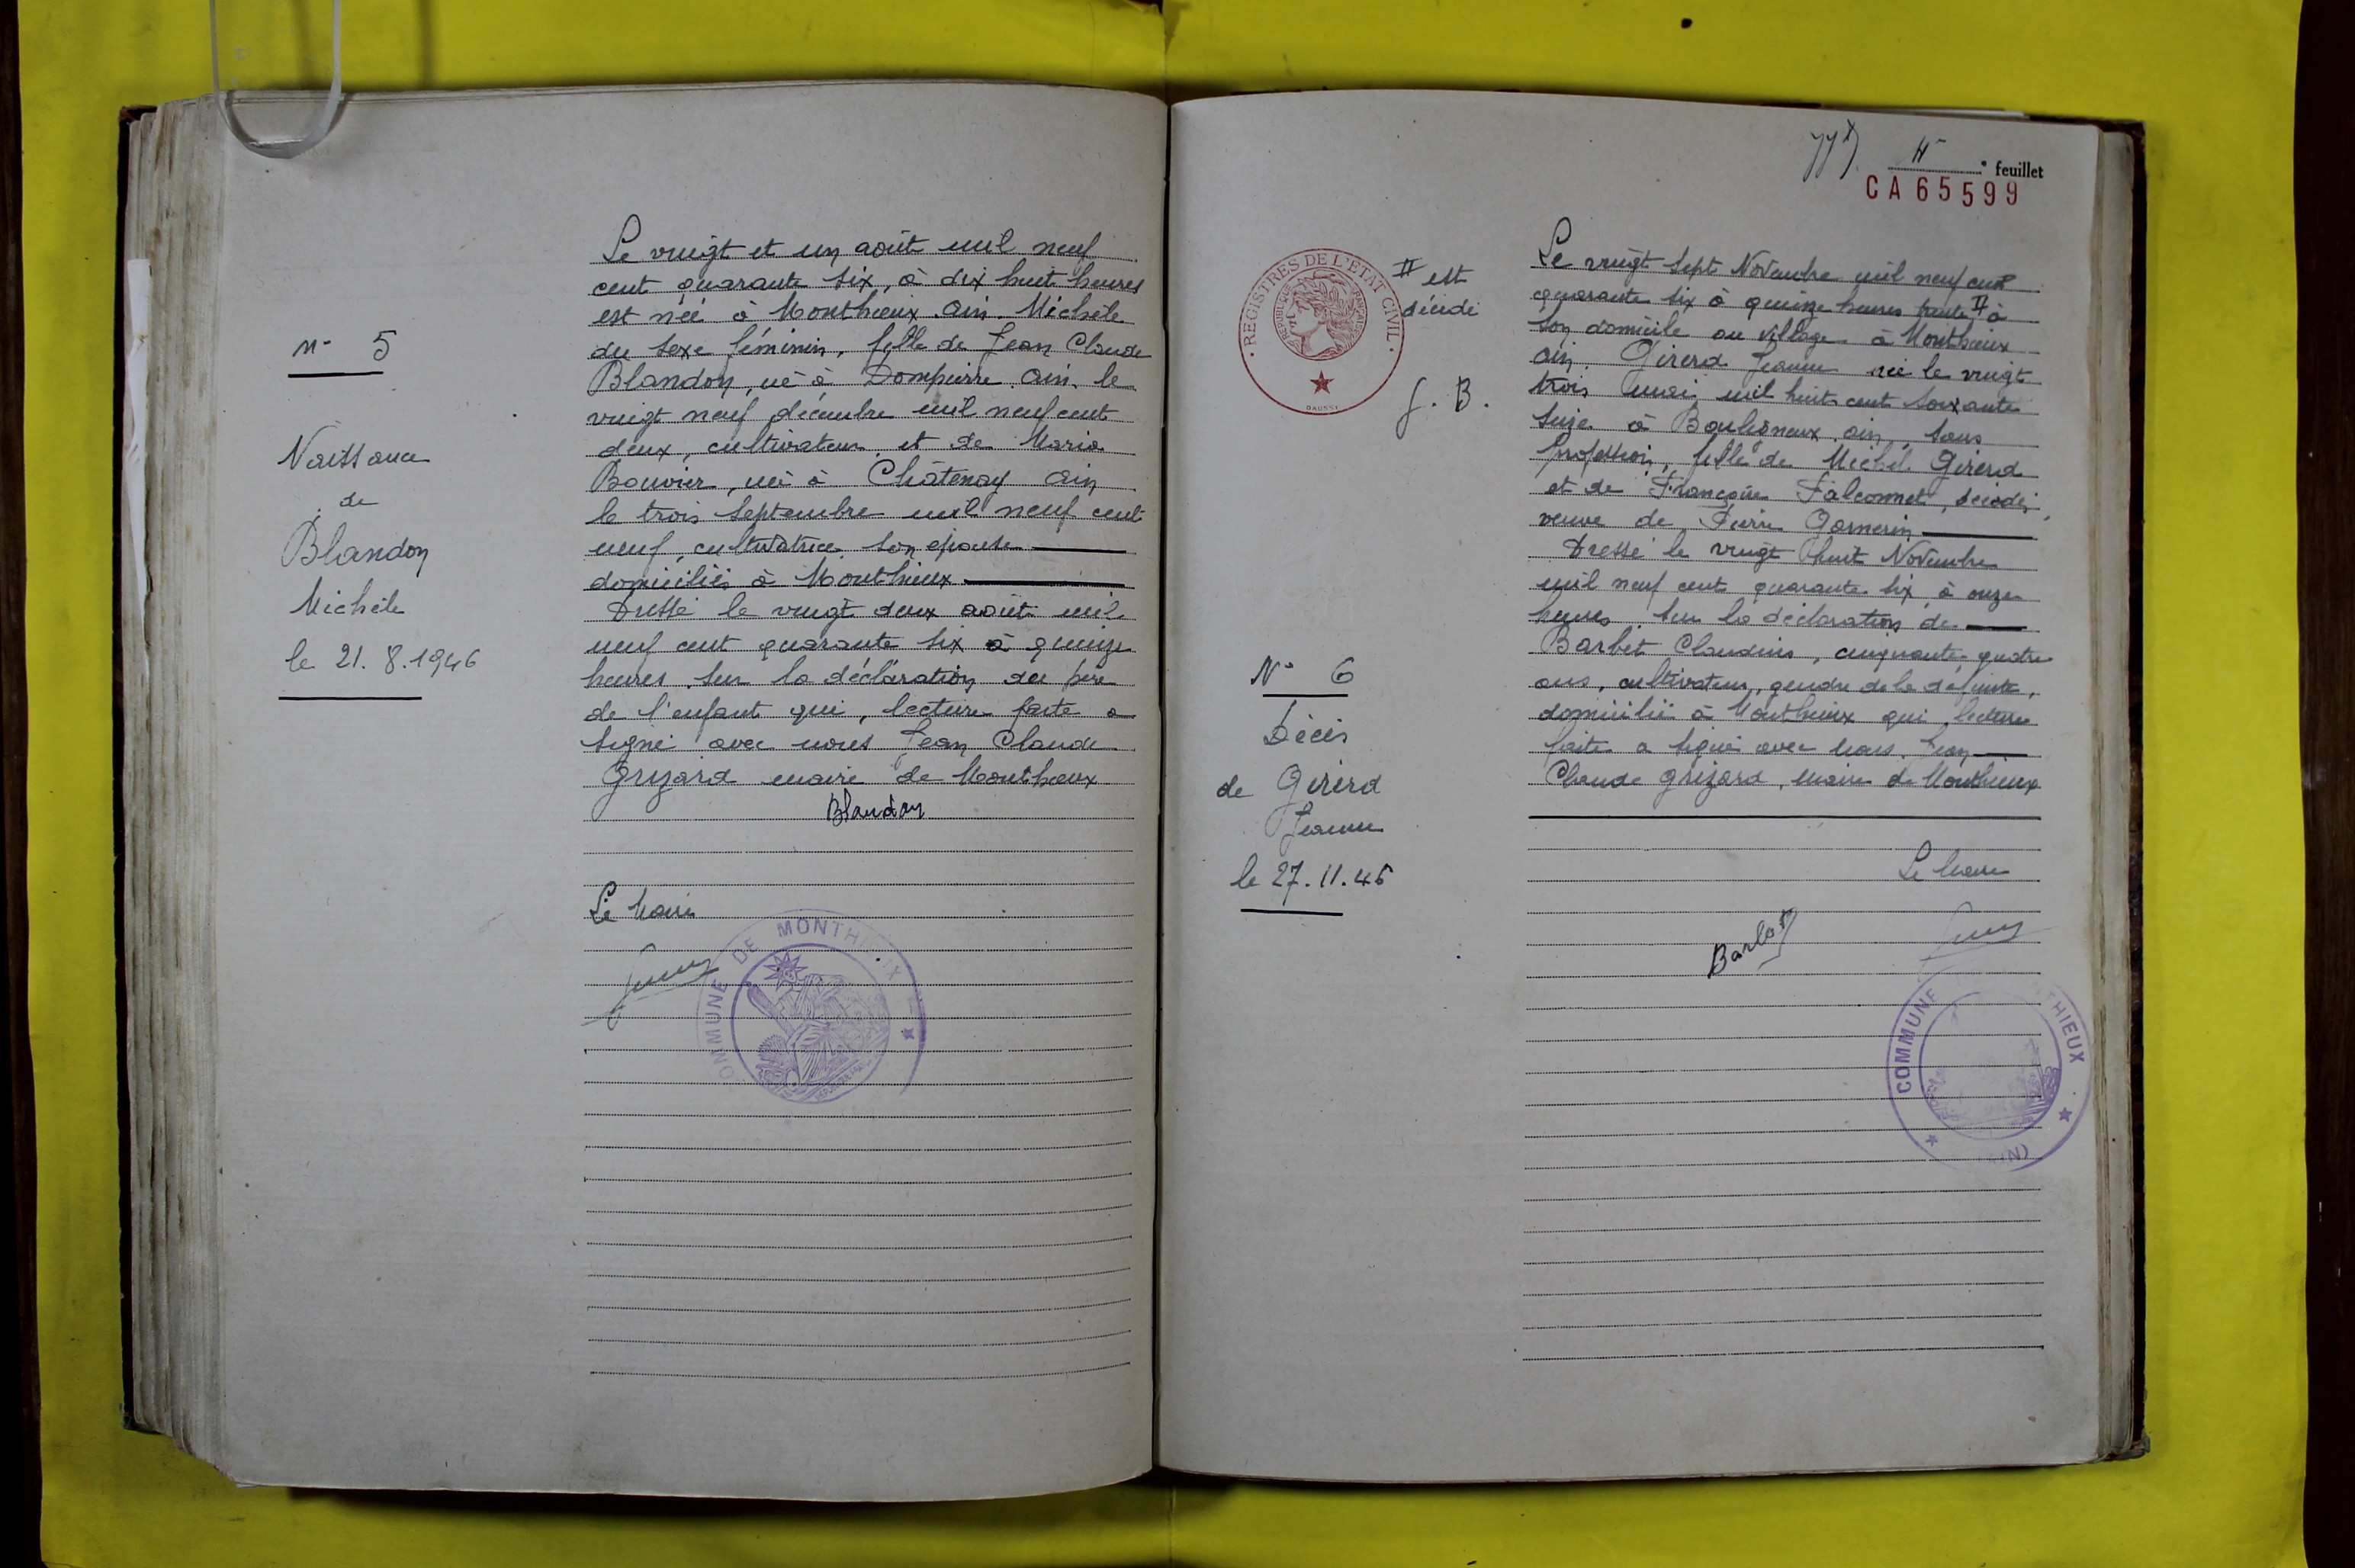 n° 5
Naissance
de
Blandon
Michèle
le 21.8.1946
Le vingt et un août mil neuf
cent quarante six, à dix huit heures
est née à Monthieux Ain. Michèle
du sexe féminin, fille de Jean Claude
Blandon, né à Dompierre Ain le
vingt neuf décembre mil neuf cent
deux, cultivateur et de Maria
Bouvier, née à Châtenay Ain
le trois Septembre mil neuf cent
neuf, cultivatrice son épouse
domiciliés à Monthieux
Dressé le vingt deux août mil
neuf cent quarante six à quinze
heures sur la déclaration du père
de l'enfant qui, lecture faite a
signé avec nous Jean Claude
Grizard maire de Monthieux
Blandon
Le Maire
COMMUNE DE MONTHIEUX
4e feuillet
CA65599
REGISTRES DE L'ETAT CIVIL
REPUBLIQUE FRANÇAISE
DAUSSY
II est
décédé
J. B.
N° 6
Décès
de Girerd
Jeanne
le 27.11.46
Le vingt sept Novembre mil neuf cent
quarante six à quinze heures trente II à
son domicile au village à Monthieux
Ain Girerd Jeanne née le vingt
trois mai mil huit cent soixante
seize à Bouligneux Ain, sans
profession, fille de Michel Girerd
et de Françoise Falconnet, décédés,
veuve de Pierre Garnerin
Dressé le vingt huit Novembre
mil neuf cent quarante six à onze
heures sur la déclaration de
Barbet Claudius, cinquante quatre
ans, cultivateur, gendre de la défunte,
domicilié à Monthieux qui, lecture
faite a signé avec nous Jean
Claude Grizard, maire de Monthieux
Le Maire
Barbet
COMMUNE THIEUX